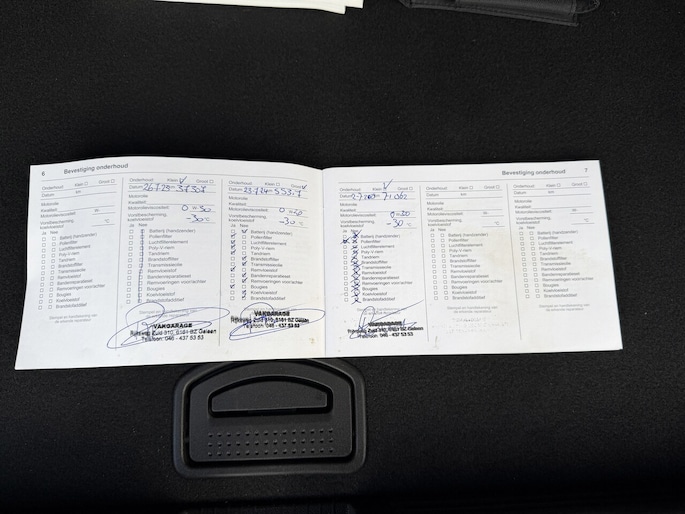 6 Bevestiging onderhoud
Onderhoud: Klein Groot
Datum km
Motorolie
Kwaliteit
Motorolieviscositeit W-
Vorstbescherming,
koelvloeistof °C
Ja Nee
Batterij (handzender)
Pollenfilter
Luchtfilterelement
Poly-V-riem
Tandriem
Brandstoffilter
Transmissieolie
Remvloeistof
Bandenreparatieset
Remvoeringen voor/achter
Bougies
Koelvloeistof
Brandstofadditief
Stempel en handtekening van
de erkende reparateur
Onderhoud: Klein Groot
Datum 26-7-23 km 37307
Motorolie
Kwaliteit
Motorolieviscositeit 0 W-30
Vorstbescherming,
koelvloeistof -30 °C
Ja Nee
Batterij (handzender)
Pollenfilter
Luchtfilterelement
Poly-V-riem
Tandriem
Brandstoffilter
Transmissieolie
Remvloeistof
Bandenreparatieset
Remvoeringen voor/achter
Bougies
Koelvloeistof
Brandstofadditief
VAKGARAGE
Rijksweg Zuid 310, 6161 BZ Geleen
Telefoon: 046 - 437 53 53
Onderhoud: Klein Groot
Datum
Motorolie
Kwaliteit
Motorolieviscositeit 0 W-30
Vorstbescherming,
koelvloeistof -30 °C
Ja Nee
Batterij (handzender)
Pollenfilter
Luchtfilterelement
Poly-V-riem
Tandriem
Brandstoffilter
Transmissieolie
Remvloeistof
Bandenreparatieset
Remvoeringen voor/achter
Bougies
Koelvloeistof
Brandstofadditief
VAKGARAGE
Rijksweg Zuid 310, 6161 BZ Geleen
Telefoon: 046 - 437 53 53
Bevestiging onderhoud 7
Onderhoud: Klein Groot
Datum
Motorolie
Kwaliteit
Motorolieviscositeit 0 W-30
Vorstbescherming,
koelvloeistof -30 °C
Ja Nee
Batterij (handzender)
Pollenfilter
Luchtfilterelement
Poly-V-riem
Tandriem
Brandstoffilter
Transmissieolie
Remvloeistof
Bandenreparatieset
Remvoeringen voor/achter
Bougies
Koelvloeistof
Brandstofadditief
VAKGARAGE
Rijksweg Zuid 310, 6161 BZ Geleen
Telefoon: 046 - 437 53 53
Onderhoud: Klein Groot
Datum km
Motorolie
Kwaliteit
Motorolieviscositeit W-
Vorstbescherming,
koelvloeistof °C
Ja Nee
Batterij (handzender)
Pollenfilter
Luchtfilterelement
Poly-V-riem
Tandriem
Brandstoffilter
Transmissieolie
Remvloeistof
Bandenreparatieset
Remvoeringen voor/achter
Bougies
Koelvloeistof
Brandstofadditief
Stempel en handtekening van
de erkende reparateur
Onderhoud: Klein Groot
Datum km
Motorolie
Kwaliteit
Motorolieviscositeit W-
Vorstbescherming,
koelvloeistof °C
Ja Nee
Batterij (handzender)
Pollenfilter
Luchtfilterelement
Poly-V-riem
Tandriem
Brandstoffilter
Transmissieolie
Remvloeistof
Bandenreparatieset
Remvoeringen voor/achter
Bougies
Koelvloeistof
Brandstofadditief
Stempel en handtekening van
de erkende reparateur